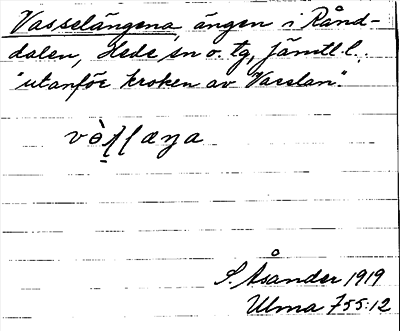 Vasselängena, ängen i Rånd-
dalen, Hede sn o. tg, Jämtl. l.
"utanför kroken av Vasslan".
S. Åsander 1919
Ulma 755:12